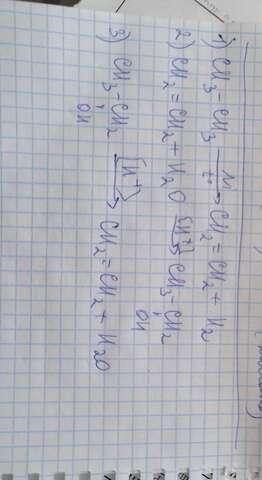 1) CH3 - CH3 ⟶ CH2 = CH2 + H2
Ni
t°
2) CH2 = CH2 + H2O [H+]⟶ CH3 - CH2
OH
3) CH3 - CH2 [H+]⟶ CH2 = CH2 + H2O
OH